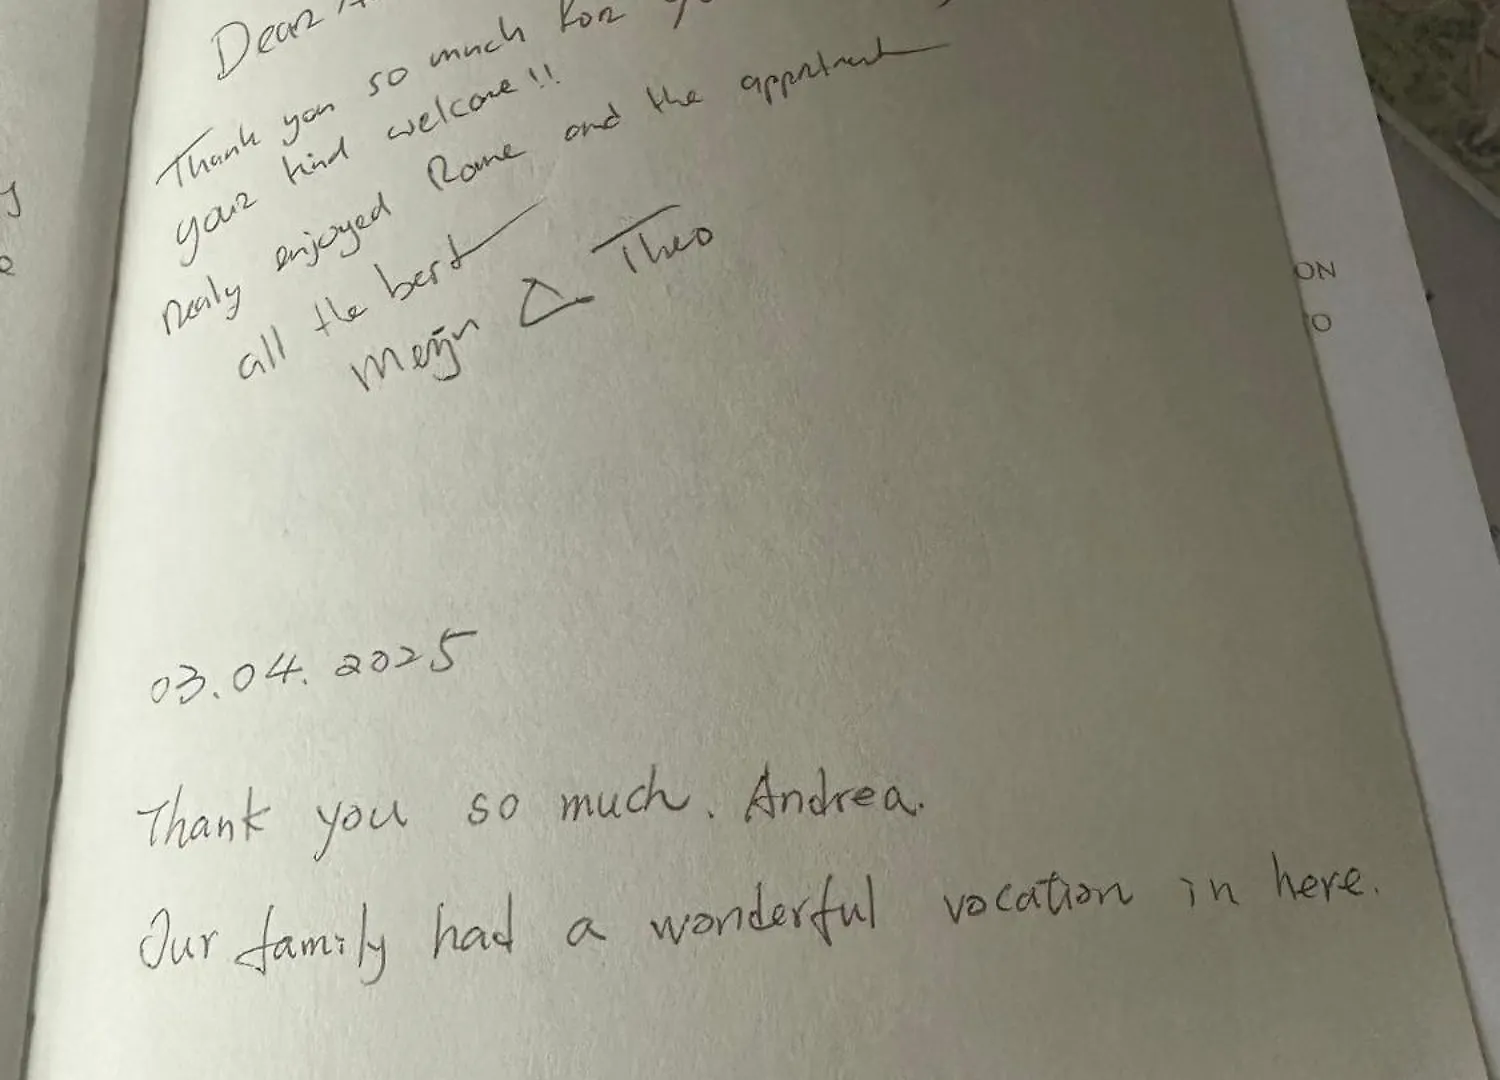 Dear
Thank you so much for
your kind welcome!!
Really enjoyed Rome and the appartment
all the best
Meijn & Theo
03.04.2025
Thank you so much. Andrea.
Our family had a wonderful vacation in here.
ON
O